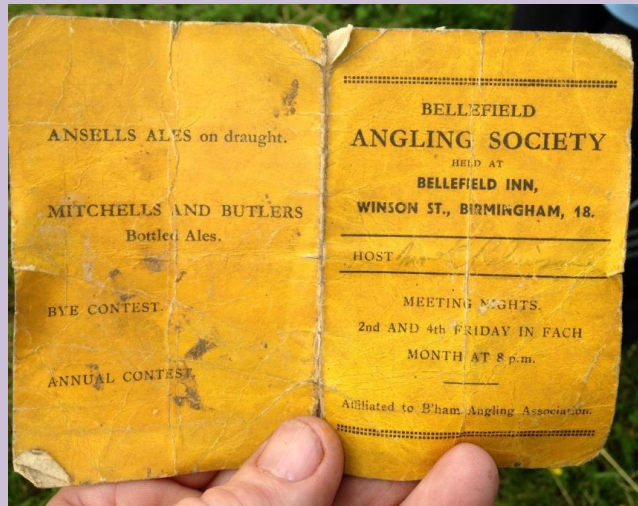 ANSELLS ALES on draught.
MITCHELLS AND BUTLERS
Bottled Ales.
BYE CONTEST.
ANNUAL CONTEST.
BELLEFIELD
ANGLING SOCIETY
HELD AT
BELLEFIELD INN,
WINSON ST., BIRMINGHAM, 18.
HOST
MEETING NIGHTS.
2nd AND 4th FRIDAY IN EACH
MONTH AT 8 p.m.
Affiliated to B'ham Angling Association.